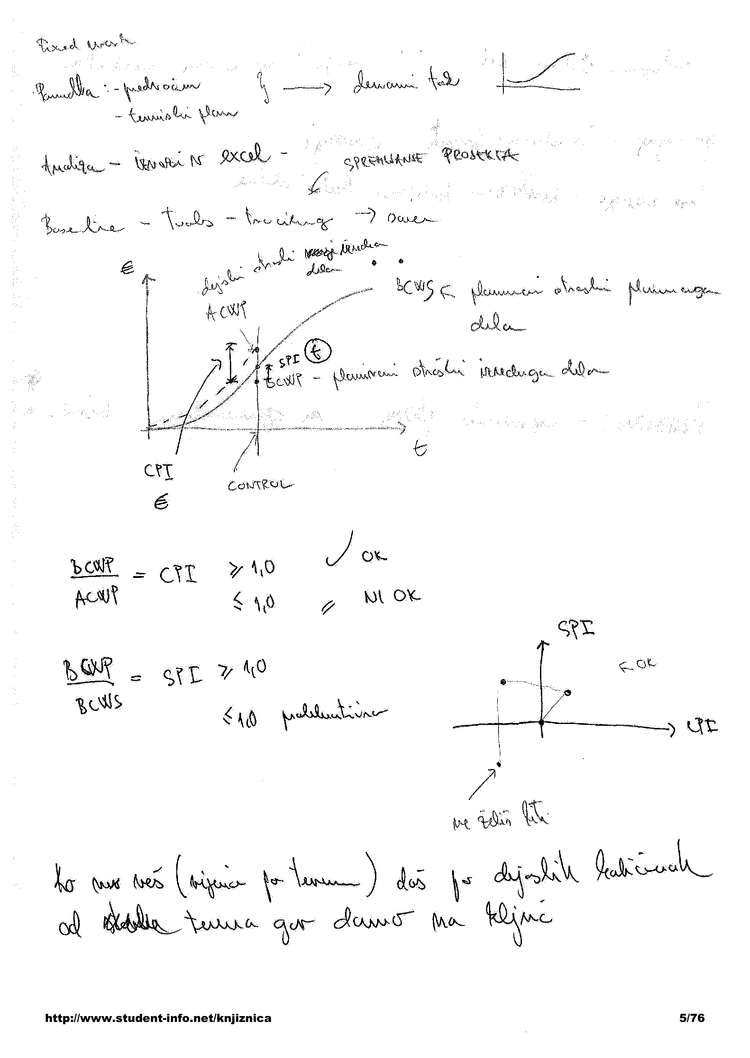 Fixed work
Ponudba : - predračun } → denarni tok
- terminski plan
Analiza - izvozi v excel -
SPREMLJANJE PROJEKTA
Baseline - Tools - tracking → save
€
dejski stroški izvedenega
dela
ACWP
BCWS ← planirani stroški planiranega
dela
SPI t
BCWP - planirani stroški izvedenega dela
t
CPI
€
CONTROL
BCWP / ACWP = CPI ≥ 1,0 ✓ OK
≤ 1,0 NI OK
SPI
← OK
BCWP / BCWS = SPI ≥ 1,0
≤ 1,0
CPI
ne želiš biti
ko veš (po) daš po dejskih količinah
od tega gor damo na ključ
http://www.student-info.net/knjiznica
5/76